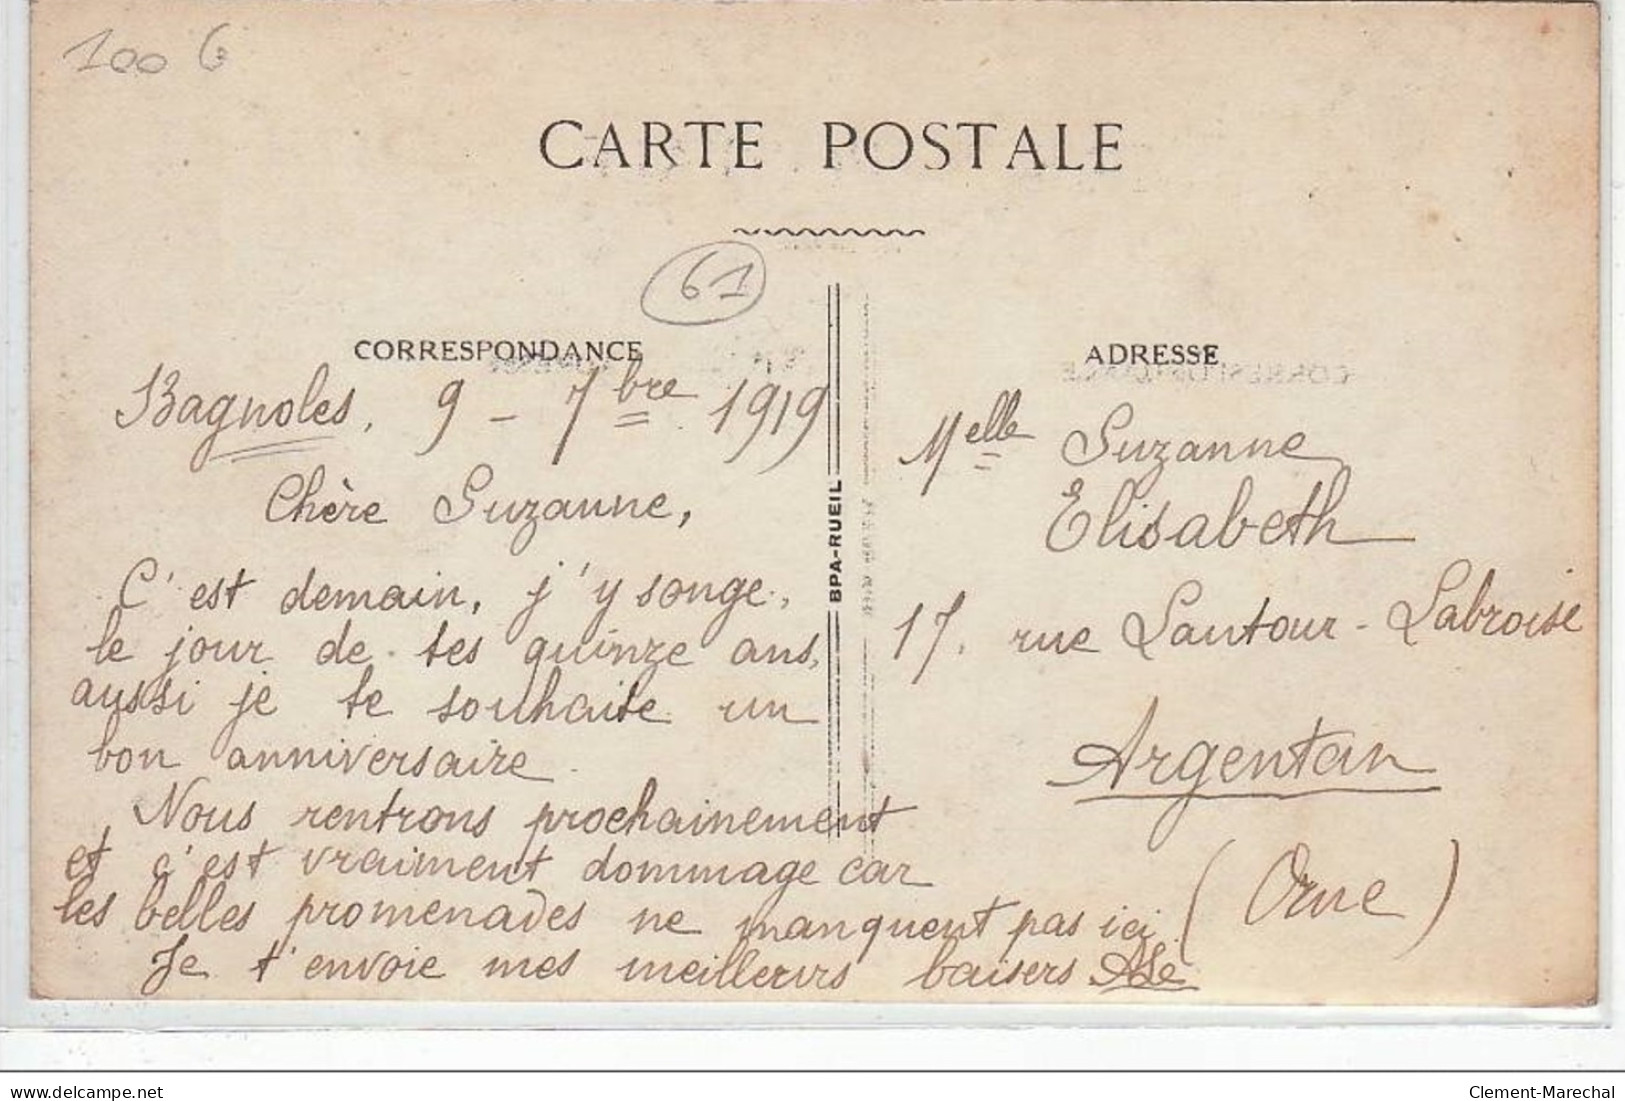 100 6
CARTE POSTALE
61
CORRESPONDANCE
Bagnoles, 9 - 7bre 1919
Chère Suzanne,
C'est demain, j'y songe,
le jour de tes quinze ans,
aussi je te souhaite un
bon anniversaire.
Nous rentrons prochainement
et c'est vraiment dommage car
les belles promenades ne manquent pas ici
Je t'envoie mes meilleurs baisers
BPA-RUEIL
ADRESSE
Melle Suzanne
Elisabeth
17. rue Lautour-Labroise
Argentan
(Orne)
delcampe.net
Clement-Marechal